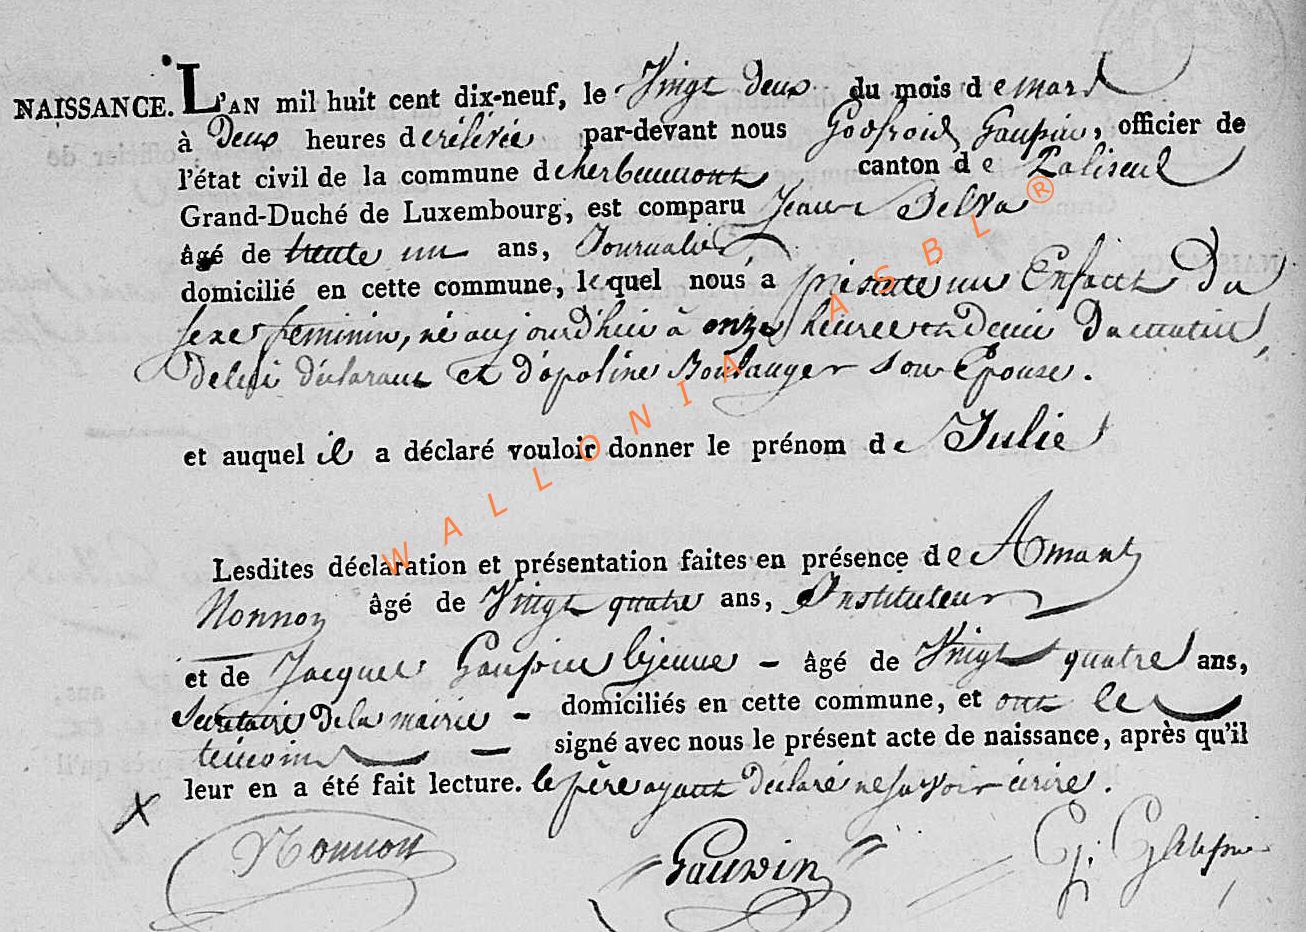 NAISSANCE. L'AN mil huit cent dix-neuf, le Vingt deux du mois de mars
à Deux heures de rélévée par-devant nous Godfroid Gaupin, officier de
l'état civil de la commune d'herbeumont canton de Paliseul
Grand-Duché de Luxembourg, est comparu Jean Delva
âgé de trente un ans, Journalier
domicilié en cette commune, lequel nous a présenté un Enfant Du
sexe feminin, né aujourd'hui à onze heures en demi Du matin,
De lui déclarant et d'apoline Boulanger son Epouse.
et auquel il a déclaré vouloir donner le prénom de Julie
Lesdites déclaration et présentation faites en présence de Amant
Nonnon âgé de Vingt quatre ans, Instituteur
et de Jacques Gaupin le jeune - âgé de Vingt quatre ans,
Secretaire De la mairie - domiciliés en cette commune, et ont les
témoins signé avec nous le présent acte de naissance, après qu'il
leur en a été fait lecture. le père ayant déclaré ne savoir écrire.
X
Nonnon Gauvin G: Gaupin
WALLONIA ASBL ®